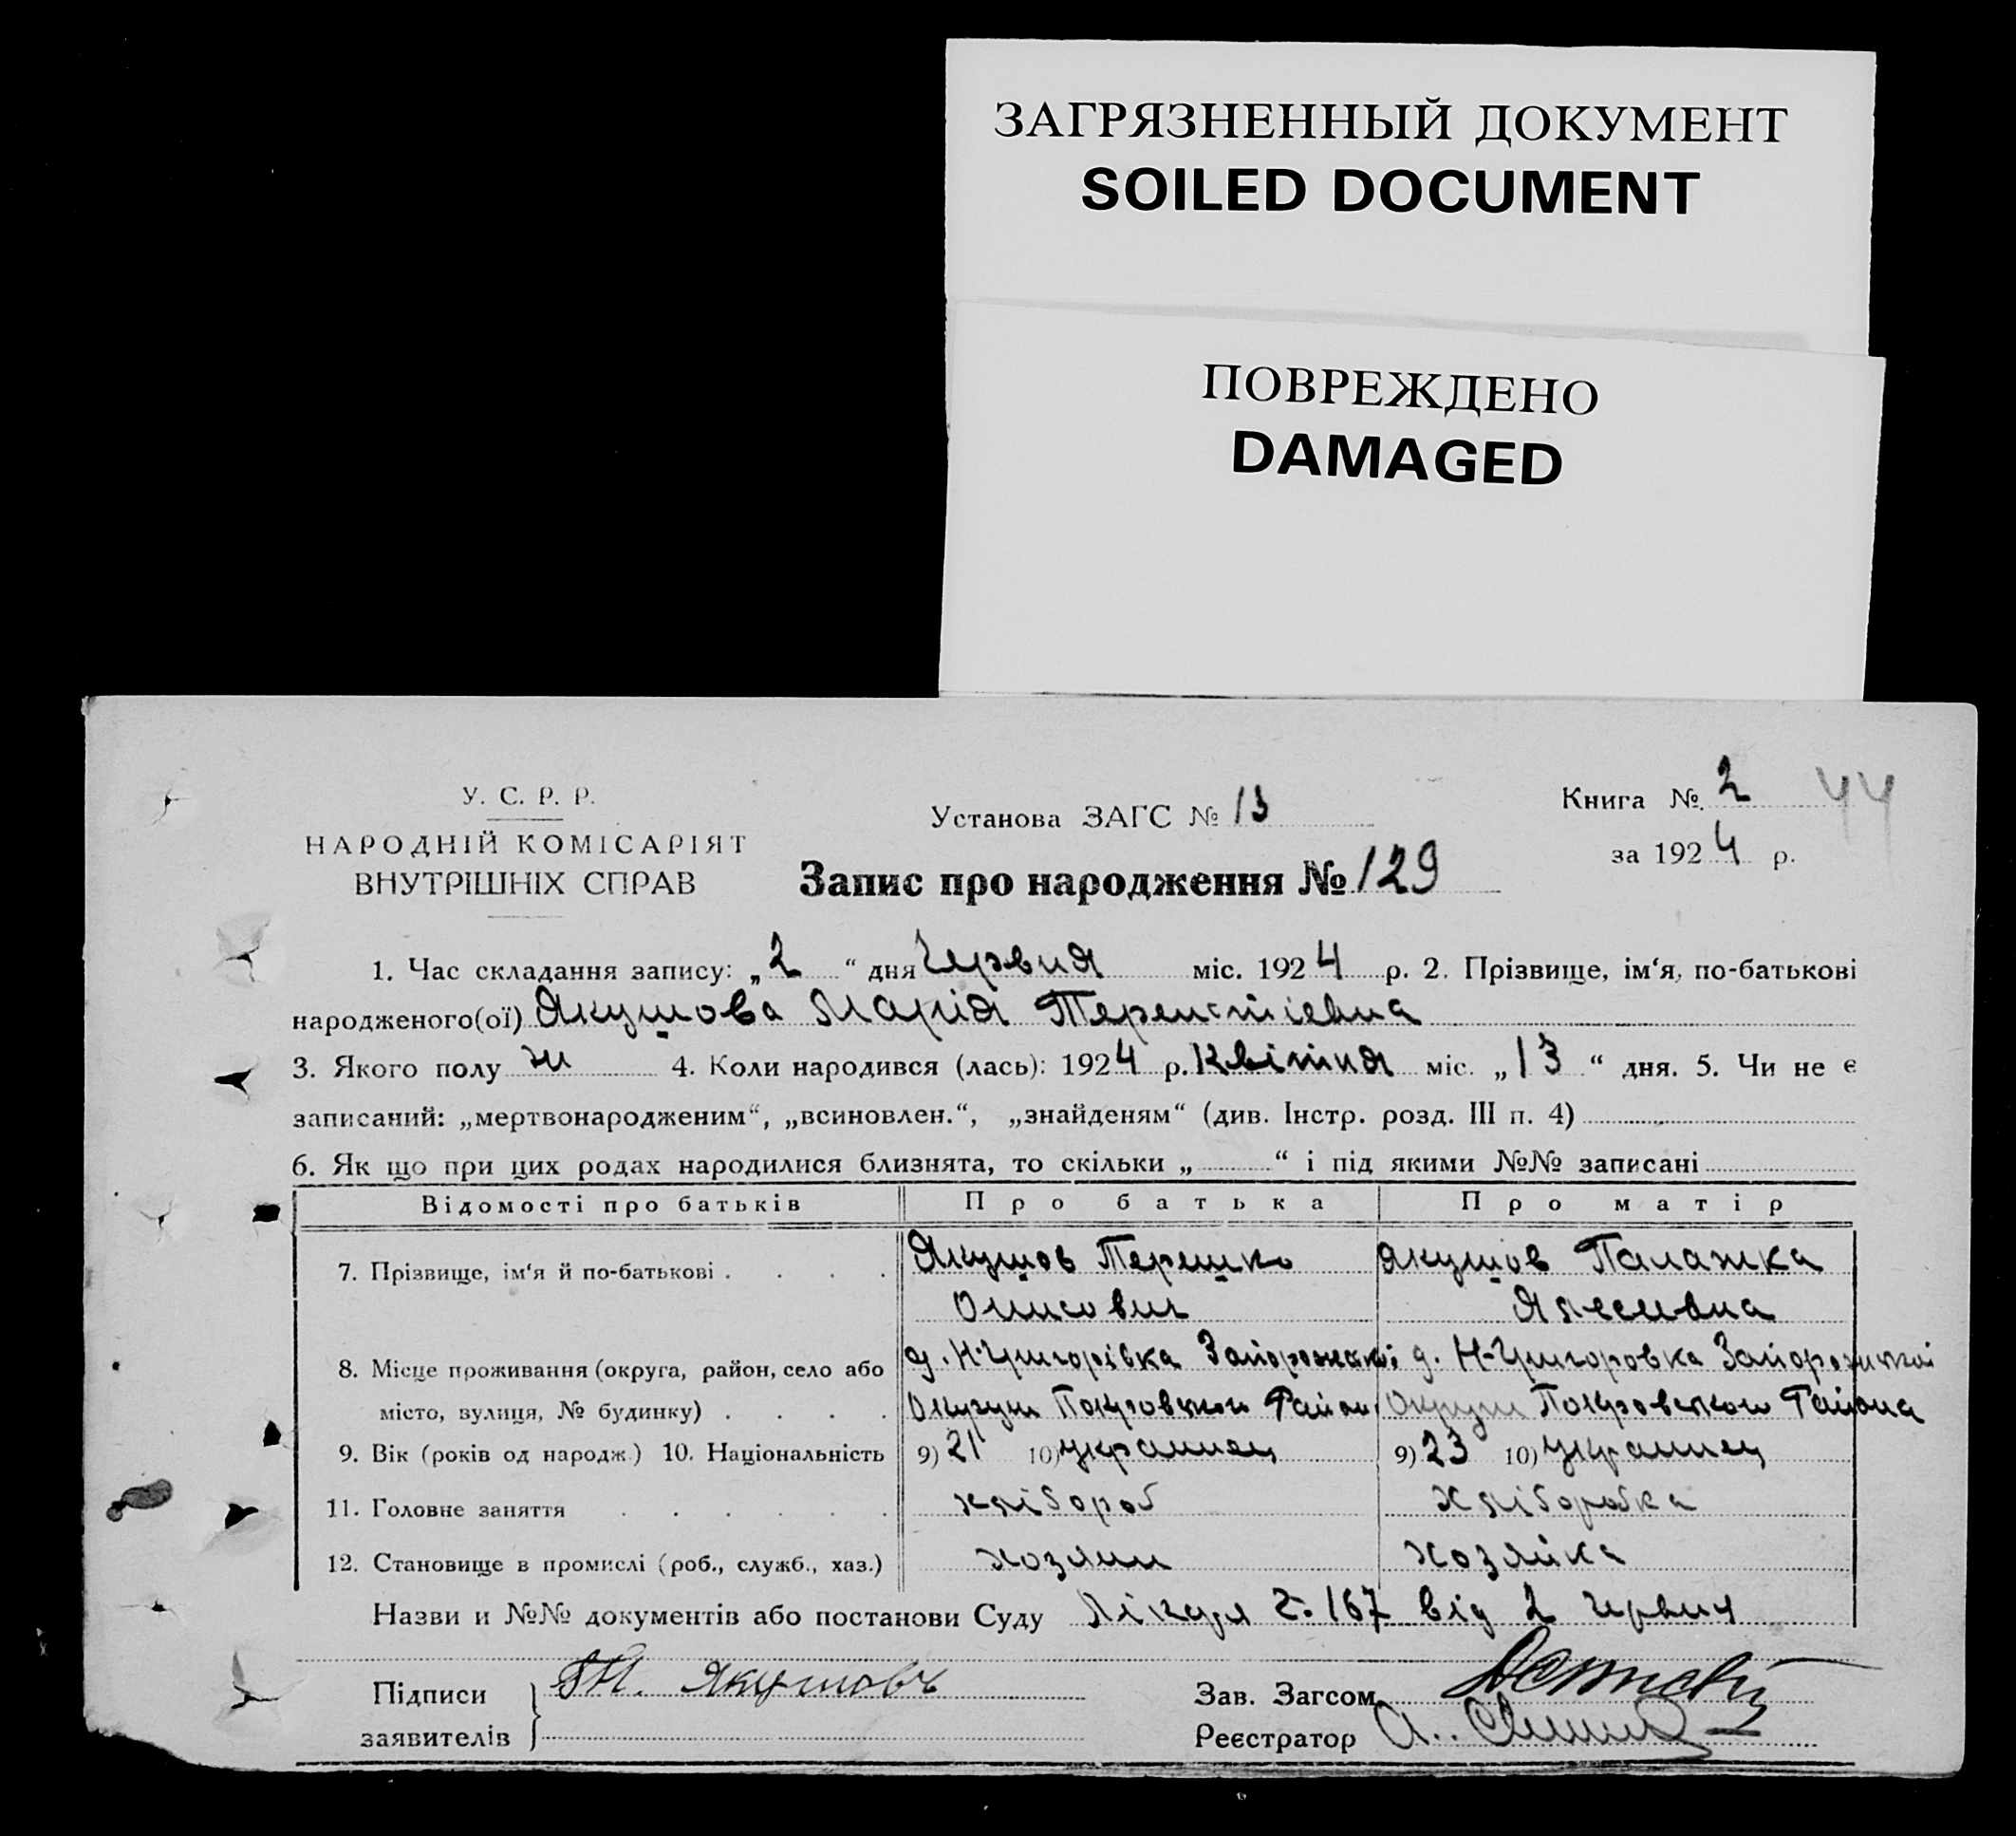 ЗАГРЯЗНЕННЫЙ ДОКУМЕНТ
SOILED DOCUMENT
ПОВРЕЖДЕНО
DAMAGED
У. С. Р. Р.
НАРОДНІЙ КОМІСАРІЯТ
ВНУТРІШНІХ СПРАВ
Установа ЗАГС № 13
Книга № 2 44
за 1924 р.
Запис про народження № 129
1. Час складання запису: „2“ дня Червня міс. 1924 р. 2. Прізвище, ім‘я, по-батькові
народженого(ої) Якушова Марія Терентіевна
3. Якого полу ж 4. Коли народився (лась): 1924 р. Квітня міс. „13“ дня. 5. Чи не є
записаний: „мертвонародженим“, „всиновлен.“, „знайденям“ (див. Інстр. розд. III п. 4)
6. Як що при цих родах народилися близнята, то скільки „ “ і під якими №№ записані
Відомості про батьків Про батька Про матір
7. Прізвище, ім‘я й по-батькові . . . . Якушов Терешко Якушов Палажка
8. Місце проживання (округа, район, село або д. Н-Григорівка Запорожскоі д. Н-Григоровка Запорожской
місто, вулиця, № будинку) . . . . Округи Покровского Район Округи Покровского Района
9. Вік (років од народж.) 10. Національність 9) 21 10) украинец 9) 23 10) украинец
11. Головне заняття . . . . . . хлібороб хліборобка
12. Становище в промислі (роб., служб., хаз.) хозяин хозяйка
Назви и №№ документів або постанови Суду Лікаря 167 від 2 червня
Підписи Якушовъ Зав. Загсом
заявителів Реєстратор